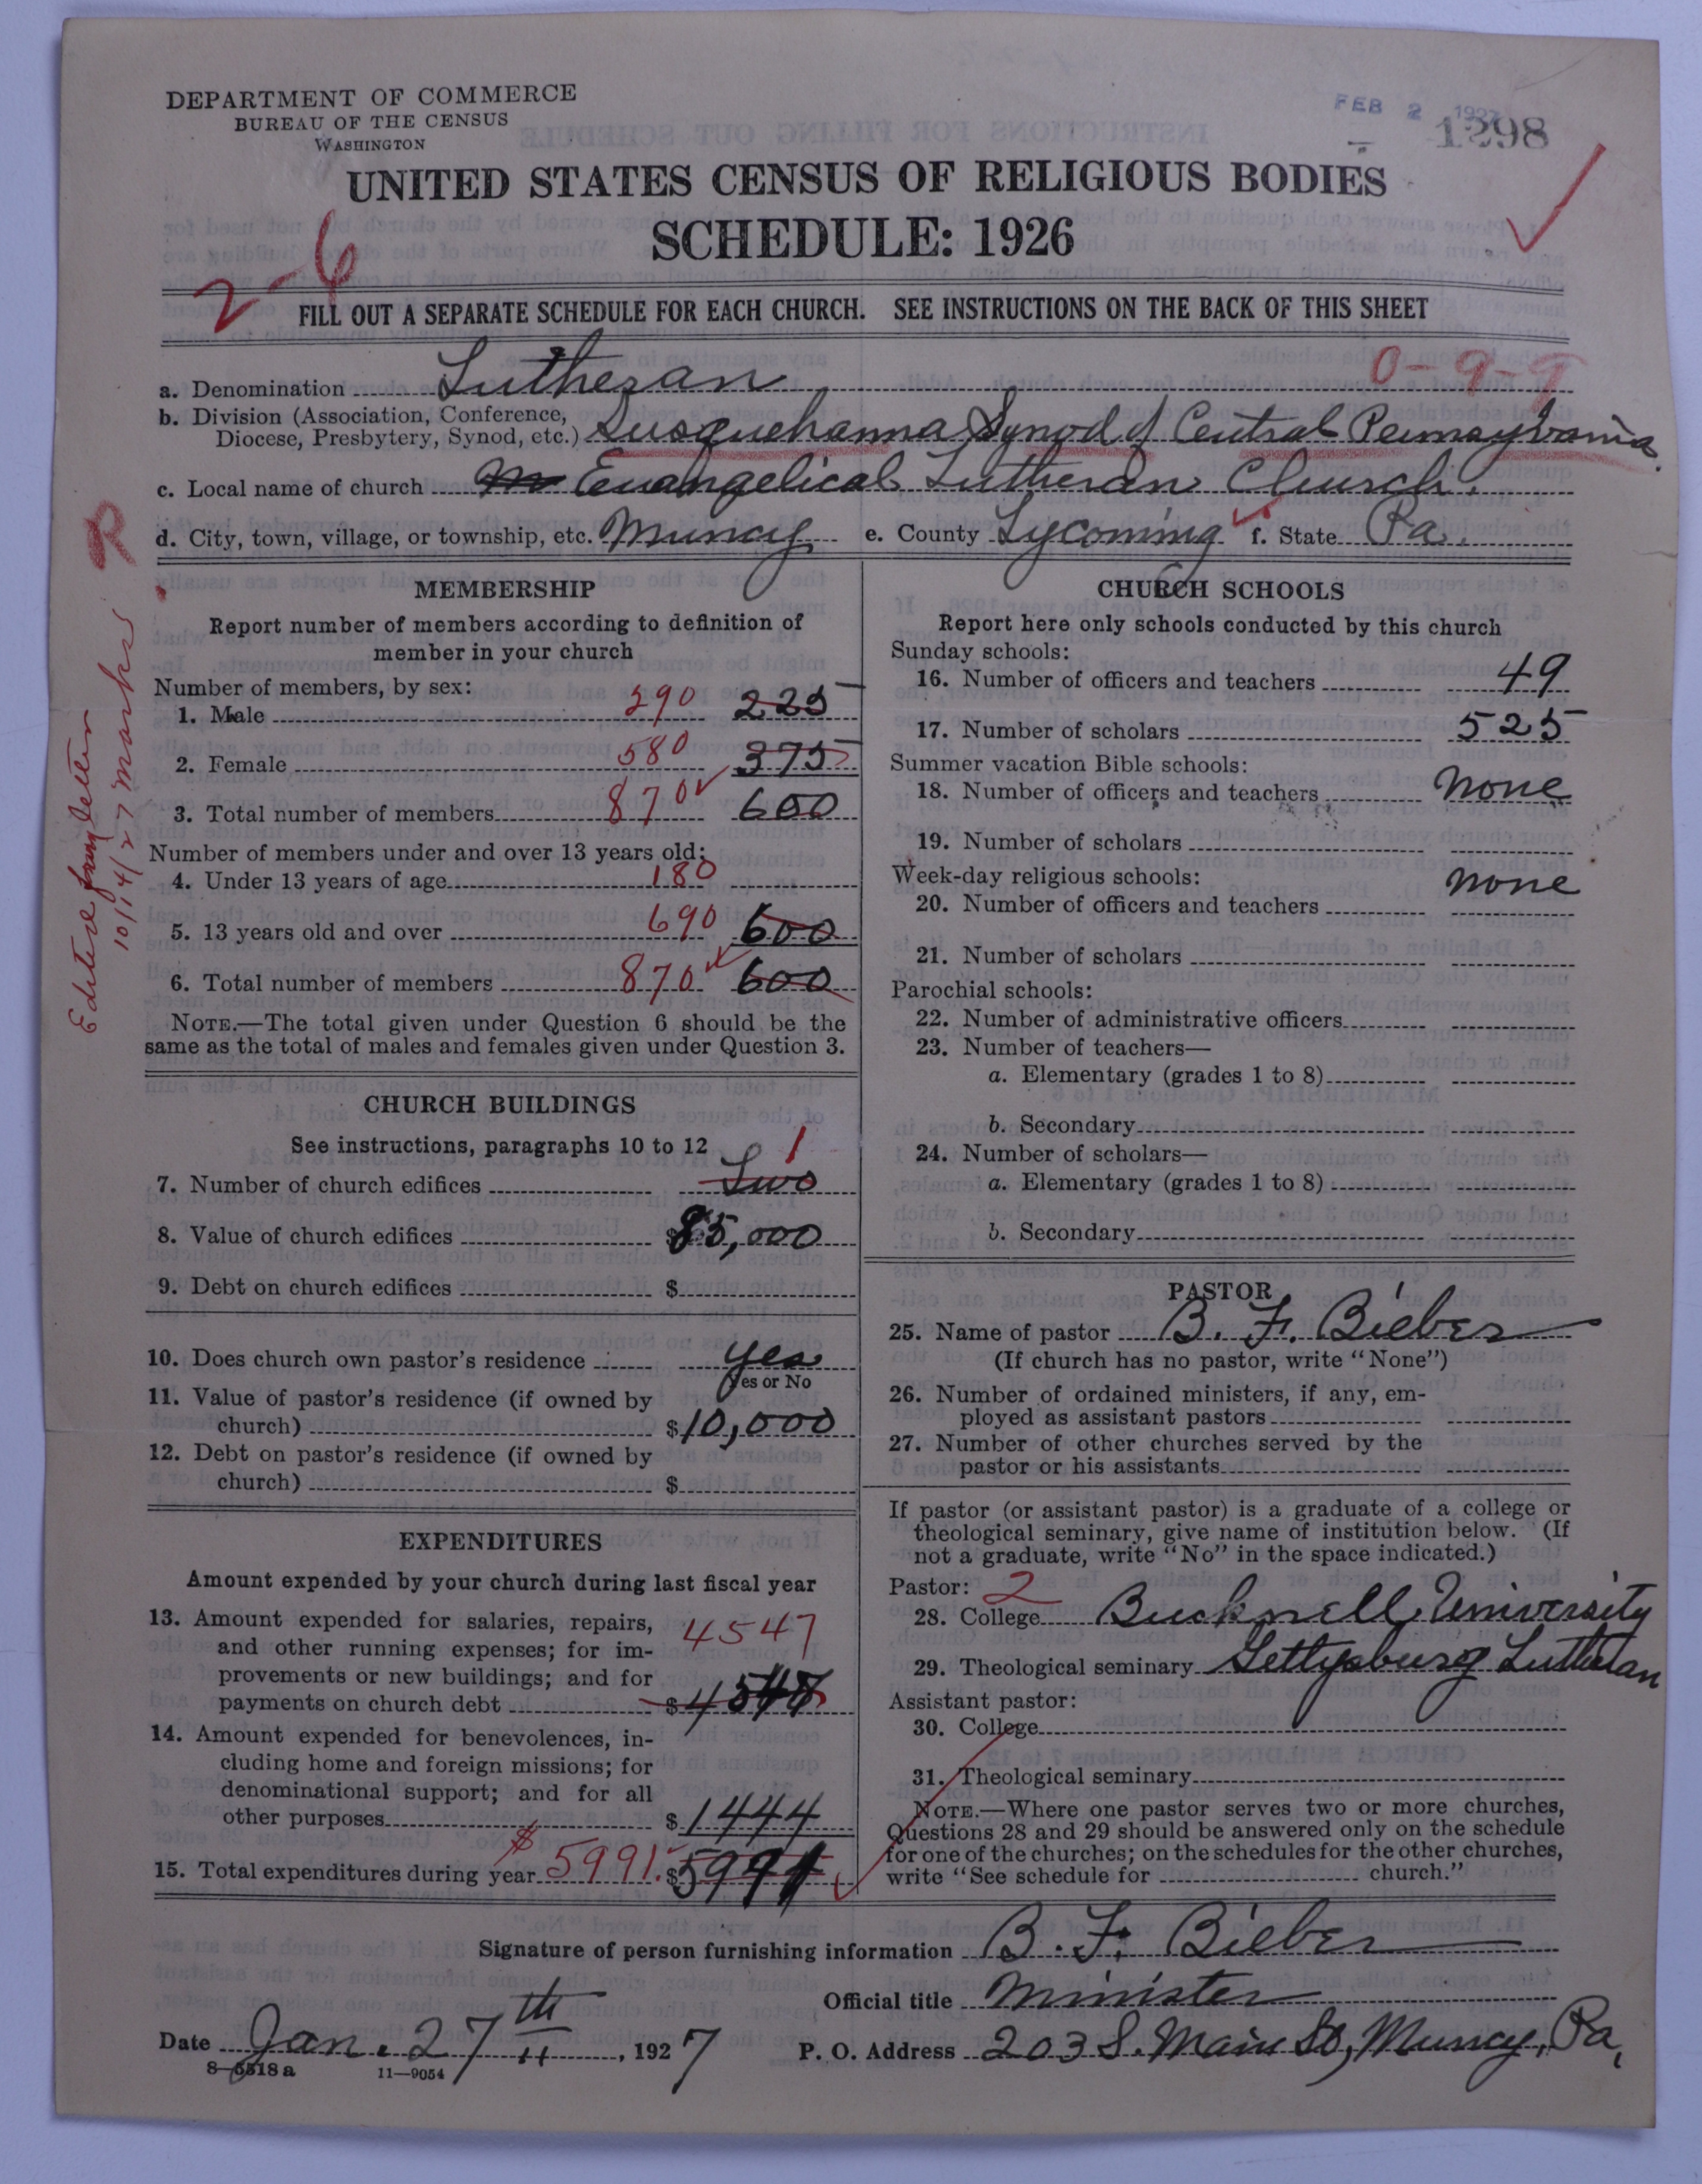 DEPARTMENT OF COMMERCE
BUREAU OF THE CENSUS
WASHINGTON
FEB 2 1927
1298
UNITED STATES CENSUS OF RELIGIOUS BODIES
SCHEDULE: 1926
2-6
FILL OUT A SEPARATE SCHEDULE FOR EACH CHURCH. SEE INSTRUCTIONS ON THE BACK OF THIS SHEET
0-9-9
a. Denomination Lutheran
b. Division (Association, Conference,
Diocese, Presbytery, Synod, etc.) Susquehanna Synod of Central Pennsylvania.
c. Local name of church Evangelical Lutheran Church.
d. City, town, village, or township, etc. Muncy e. County Lycoming f. State Pa.
R
Edited from letter
10/14/27 Marks
MEMBERSHIP
Report number of members according to definition of
member in your church
Number of members, by sex:
1. Male 290 225
2. Female 580 375
3. Total number of members 870 600
Number of members under and over 13 years old:
4. Under 13 years of age 180
5. 13 years old and over 690 600
6. Total number of members 870 600
NOTE.—The total given under Question 6 should be the
same as the total of males and females given under Question 3.
CHURCH BUILDINGS
See instructions, paragraphs 10 to 12
1
7. Number of church edifices Two
8. Value of church edifices $85,000
9. Debt on church edifices $
10. Does church own pastor's residence yes
Yes or No
11. Value of pastor's residence (if owned by
church) $10,000
12. Debt on pastor's residence (if owned by
church) $
EXPENDITURES
Amount expended by your church during last fiscal year
13. Amount expended for salaries, repairs, 4547
and other running expenses; for im-
provements or new buildings; and for
payments on church debt $4547
14. Amount expended for benevolences, in-
cluding home and foreign missions; for
denominational support; and for all
other purposes $1444
15. Total expenditures during year $5991. $5991
CHURCH SCHOOLS
Report here only schools conducted by this church
Sunday schools:
16. Number of officers and teachers 49
17. Number of scholars 525
Summer vacation Bible schools:
18. Number of officers and teachers none
19. Number of scholars
Week-day religious schools:
20. Number of officers and teachers none
21. Number of scholars
Parochial schools:
22. Number of administrative officers
23. Number of teachers—
a. Elementary (grades 1 to 8)
b. Secondary
24. Number of scholars—
a. Elementary (grades 1 to 8)
b. Secondary
PASTOR
25. Name of pastor B. F. Bieber
(If church has no pastor, write "None")
26. Number of ordained ministers, if any, em-
ployed as assistant pastors
27. Number of other churches served by the
pastor or his assistants
If pastor (or assistant pastor) is a graduate of a college or
theological seminary, give name of institution below. (If
not a graduate, write "No" in the space indicated.)
Pastor: 2
28. College Bucknell University
29. Theological seminary Gettysburg Lutheran
Assistant pastor:
30. College
31. Theological seminary
NOTE.—Where one pastor serves two or more churches,
Questions 28 and 29 should be answered only on the schedule
for one of the churches; on the schedules for the other churches,
write "See schedule for church."
Signature of person furnishing information B. F. Bieber
Official title Minister
Date Jan. 27th, 1927 P. O. Address 203 S. Main St, Muncy, Pa,
8-5518a 11—9054